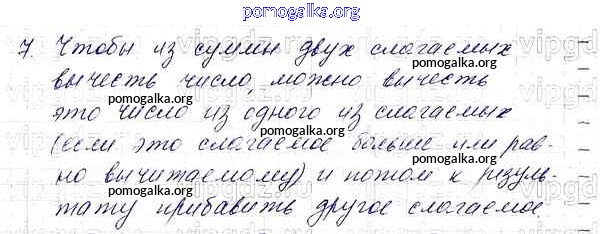 pomogalka.org
7. Чтобы из суммы двух слагаемых
pomogalka.org
вычесть число, можно вычесть
pomogalka.org
это число из одного из слагаемых
pomogalka.org
(если это слагаемое больше или рав-
но вычитаемому) и потом к резуль-
pomogalka.org
тату прибавить другое слагаемое.